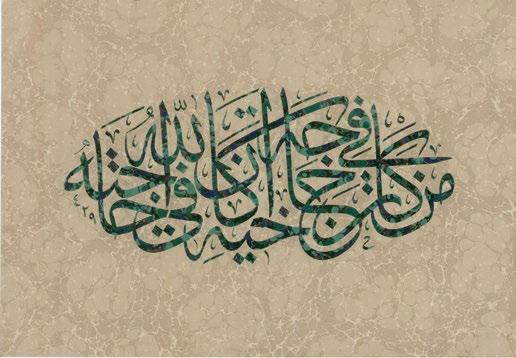 من كان في حاجة أخيه كان الله في حاجته
٤٢٩